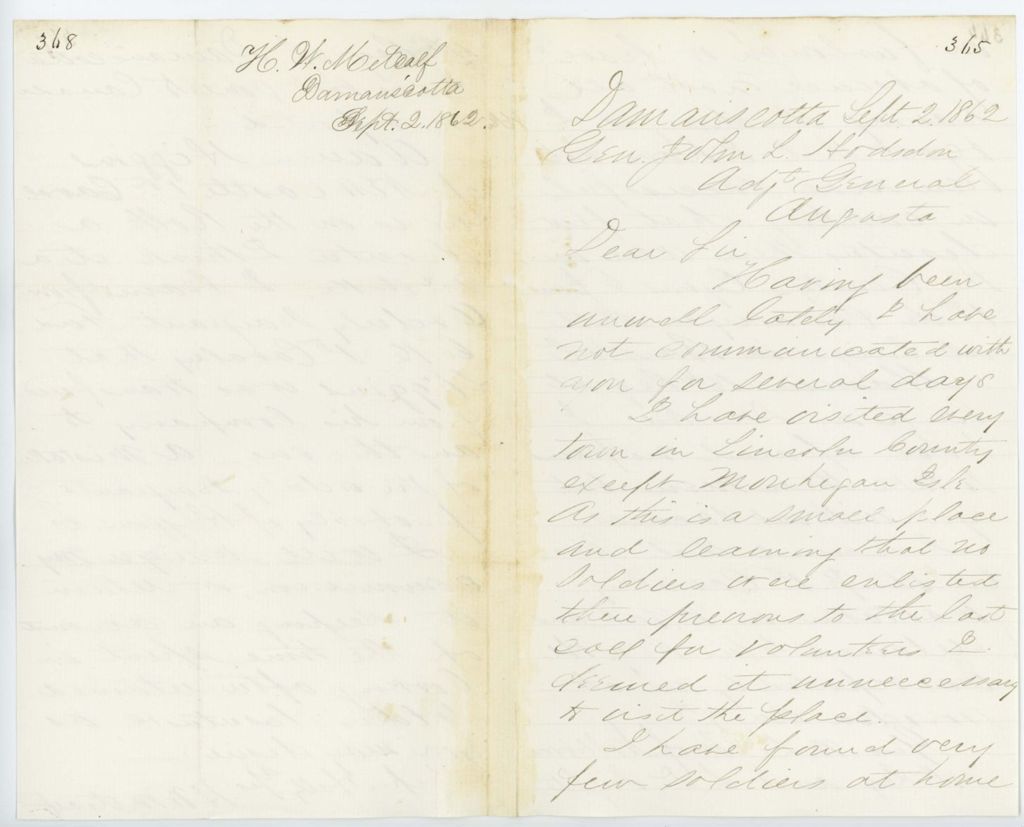 368
H. W. Metcalf
Damariscotta
Sept. 2. 1862.
365
Damariscotta Sept. 2. 1862
Gen. John L. Hodsdon
Adjt General
Augusta
Dear Sir
Having been
unwell lately I have
not communicated with
you for several days
I have visited every
town in Lincoln County
except Monhegan Isle.
As this is a small place
and learning that no
soldiers were enlisted
there previous to the last
call for volunteers I
deemed it unneccessary
to visit the place.
I have found very
few soldiers at home